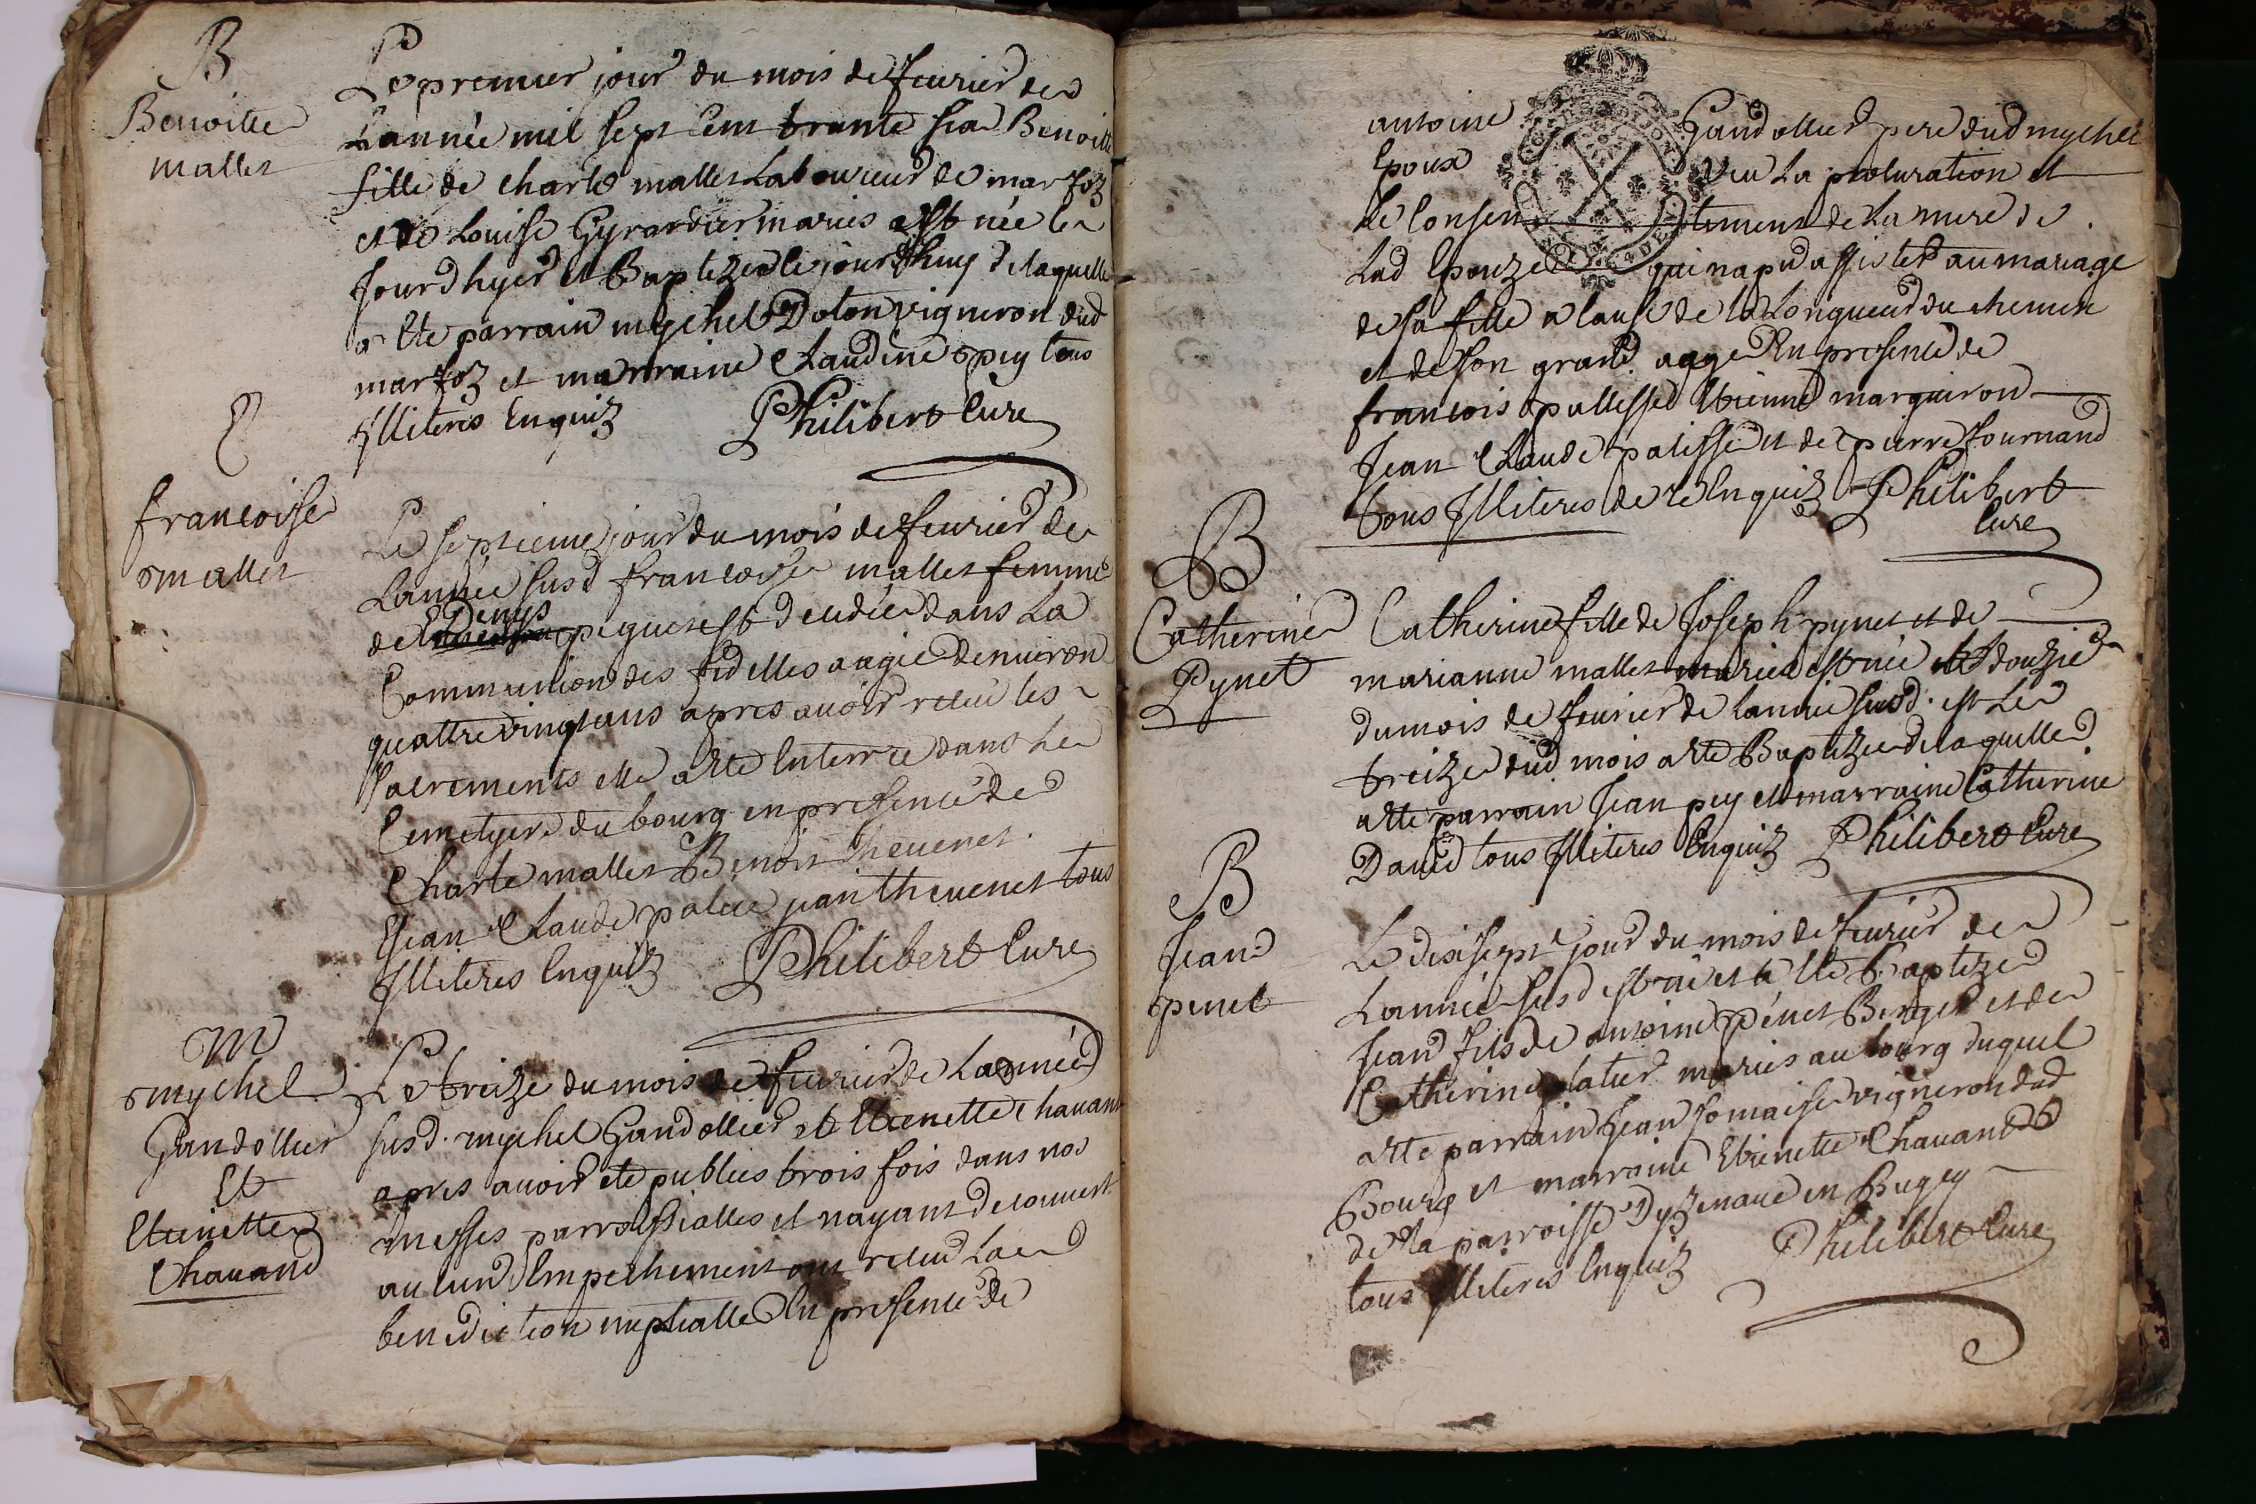 B
Benoitte
mallet
Le premier jour du mois de feurier de
Lannée mil sept cent trante six Benoitte
fille de charle mallet Laboureur de marzoz
et de Louise Gyrardier mariés est née le
Jour dhyer et Baptizee le jourdhuy de laquelle
a Ete parrain mychel Doton vigneron dud
marzoz et marraine Claudine pey tous
Illiteres Enquiz Philibert Cure
francoise
mallet
Le septieme jour du mois de feurier de
Lannée susd francoise mallet femme
de denys piquet est decedée dans La
Communion des fidelles aagée denuiron
quattre vingt ans apres auoir receu les
sacrements elle a ete Enterrée dans Le
Cemetyere du bourg en presence de
Charle mallet Benoit Theuenet
Jean Claude palue jean theuenet tous
Illiteres Enquiz Philibert Cure
M
mychel
Gandollier
Et
Etienette
Chauand
Le treize du mois de feurier de Lannée
susd. mychel Gandollier et Etienette chauand
apres auoir ete publiés trois fois dans nos
messes parroissialles et nayant decouuert
aucund Empechement ont receu La
benediction nuptialle En presence de
antoine Gandollier pere dud mychel
Epoux Veu La procuration et
Le Consentement de La mere de
Lad Epouze qui na pu assister au mariage
de sa fille a cause de la Longueur du chemin
et de son grand aage En presence de
francois palisse Etienne marguiron
Jean Claude palisse et de pierre fournand
tous Illiteres de ce Enquiz Philibert
Cure
B
Catherine
Pynet
Catherine fille de Joseph pynet et de
marianne mallet mariés est née le douzie
du mois de feurier de Lannée susd. et Le
treize dud mois a ete Baptizee de laquelle
a ete parrain Jean pey et marraine Catherine
Daued tous Illiteres Enquiz Philibert Cure
B
Jean
penet
Le dixsept jour du mois de feurier de
Lannée susd est né et a Ete Baptize
Jean fils de antoine pénet Berger et de
Catherine platier mariés au bourg duquel
a ete parrain Jean Jomaise vigneron dud
Bourg et marraine Etienette Chauand
de La parroisse Dyzenaue en Bugey
tous Illiteres Enquiz Philibert Cure